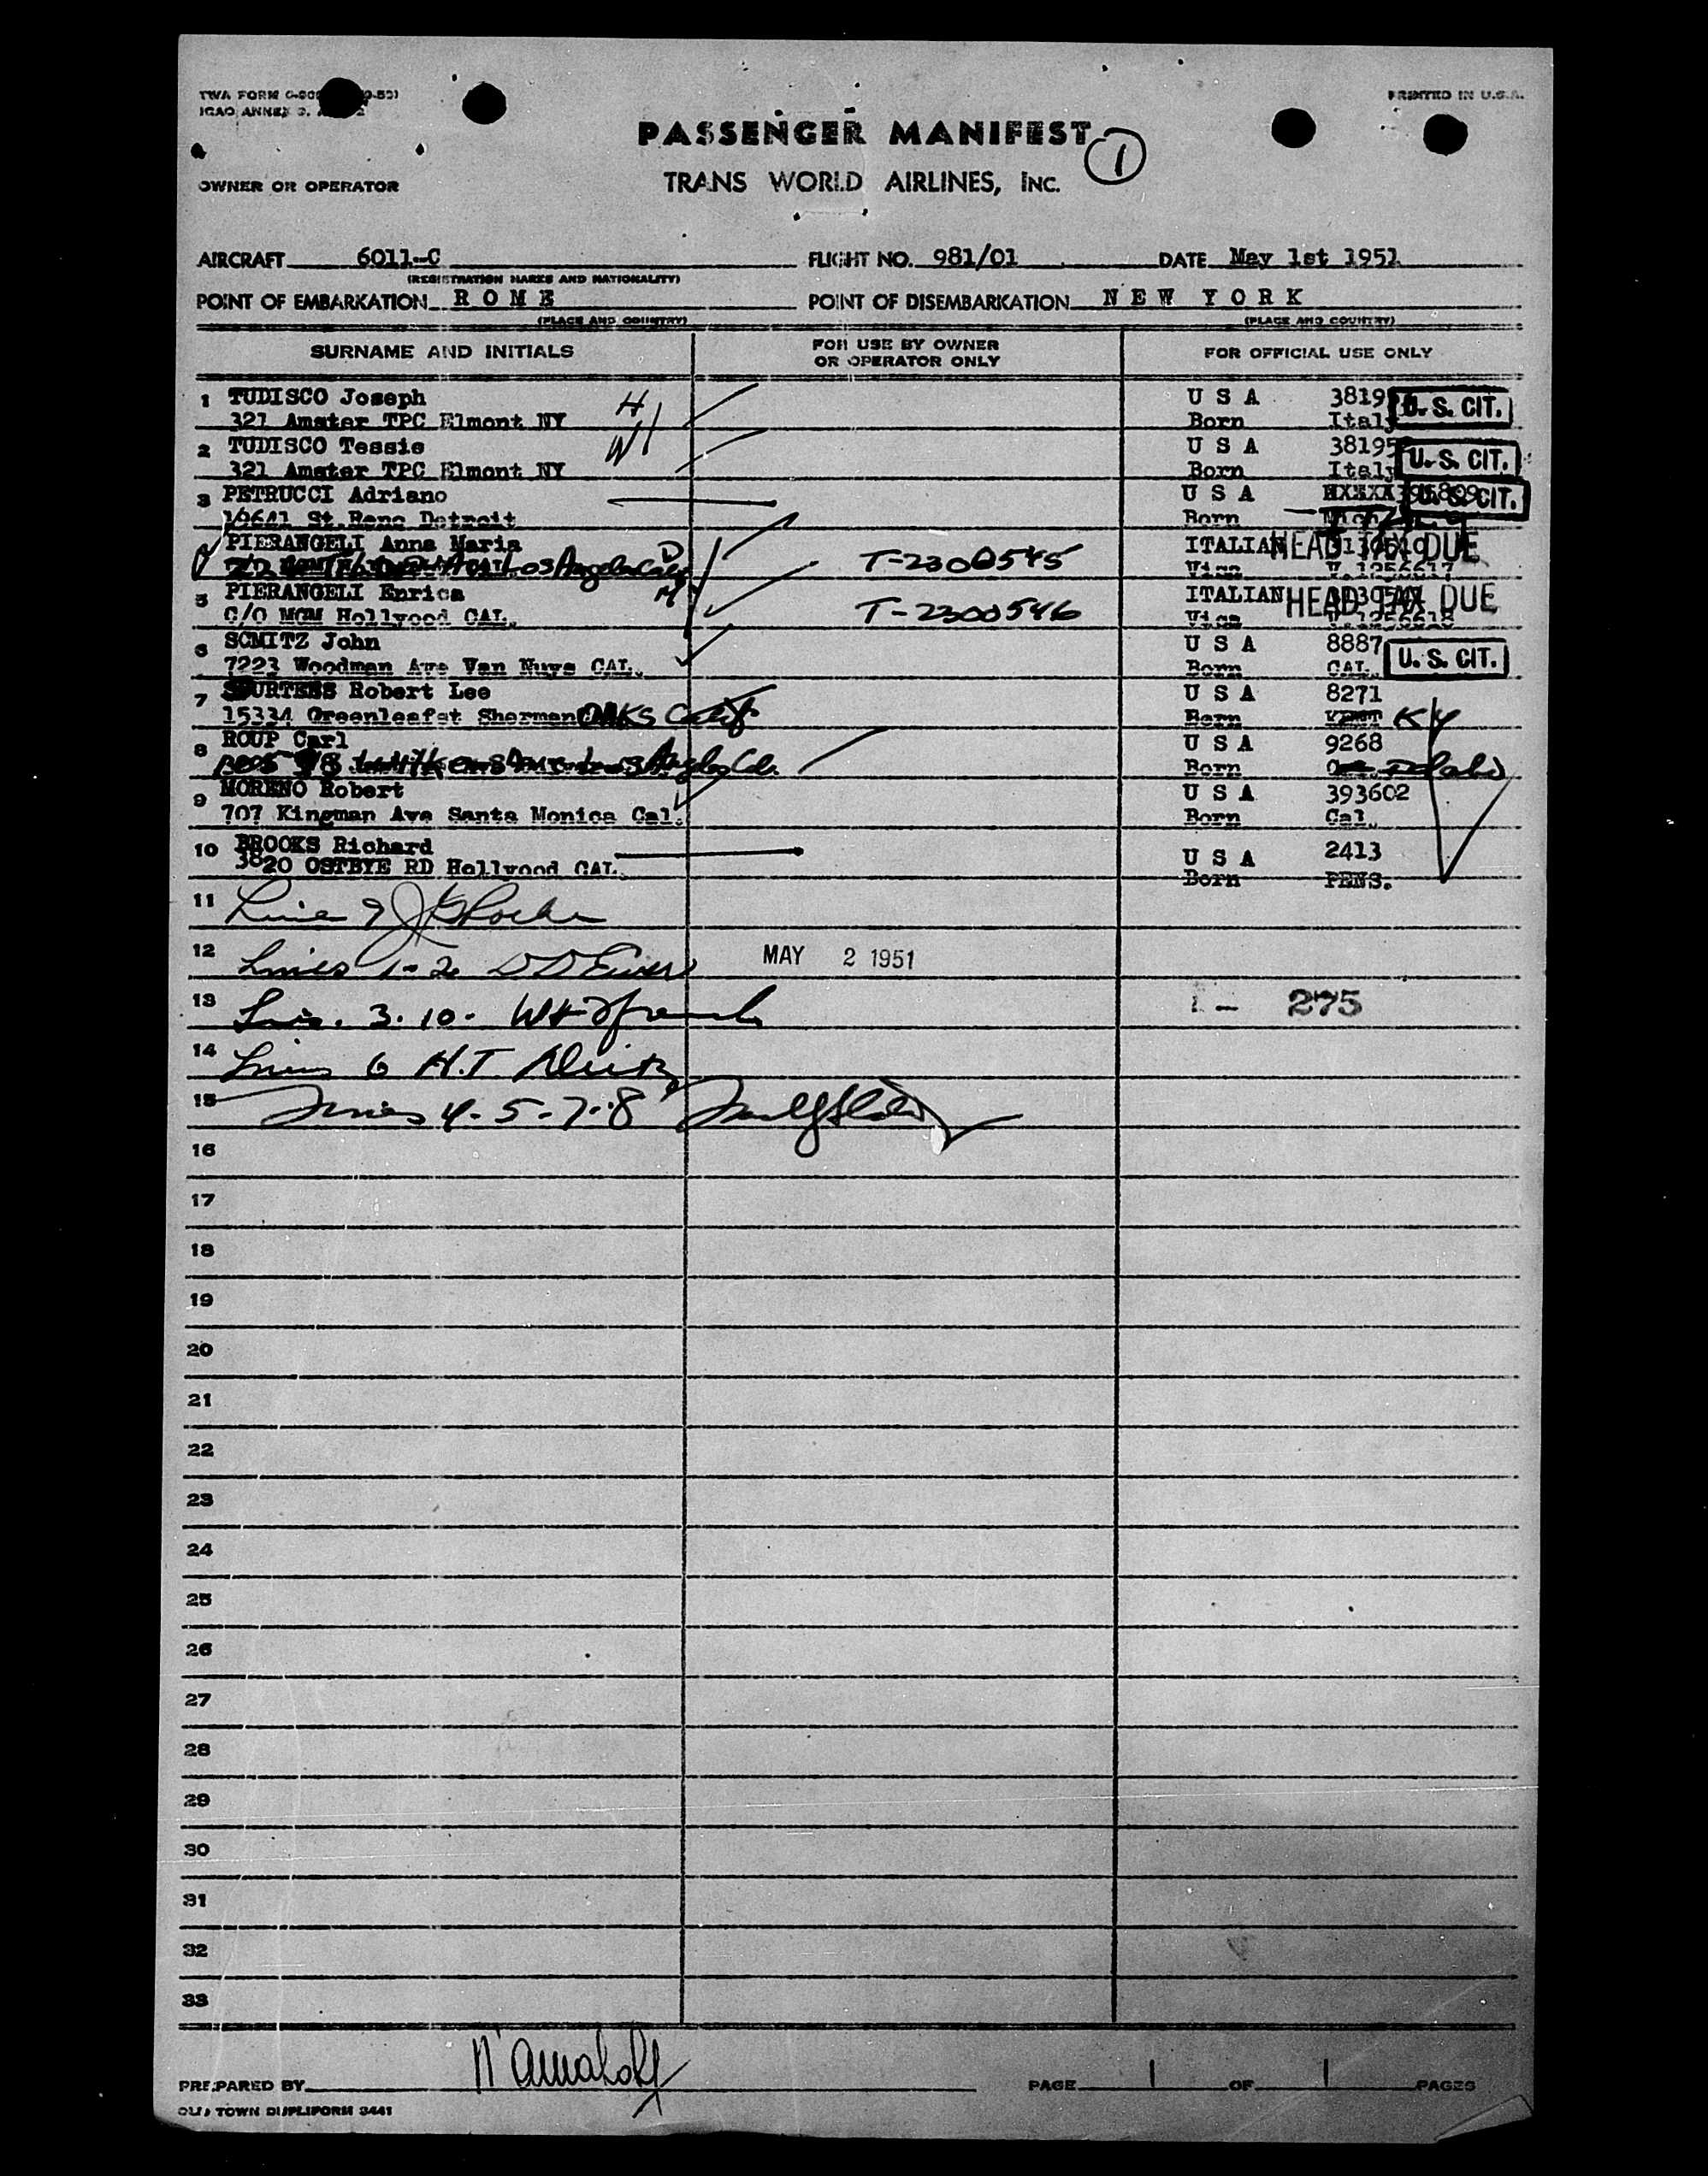 PRINTED IN U.S.A.
PASSENGER MANIFEST 1
OWNER OR OPERATOR TRANS WORLD AIRLINES, INC.
AIRCRAFT 6011-C FLIGHT NO. 981/01 DATE May 1st 1951
(REGISTRATION MARKS AND NATIONALITY)
POINT OF EMBARKATION ROME POINT OF DISEMBARKATION NEW YORK
(PLACE AND COUNTRY) (PLACE AND COUNTRY)
SURNAME AND INITIALS FOR USE BY OWNER OR OPERATOR ONLY FOR OFFICIAL USE ONLY
1 TUDISCO Joseph H U S A 3819 U.S. CIT.
321 Amster TPC Elmont NY Born Italy
2 TUDISCO Tessie W U S A 38195 U.S. CIT.
321 Amster TPC Elmont NY Born Italy
3 PETRUCCI Adriano U S A U.S. CIT.
St.Reno Detroit Born
PIERANGELI Anna Maria D ITALIAN HEAD TAX DUE
Los Angeles T-2300545 Visa V.1256617
5 PIERANGELI Enrica M T-2300546 ITALIAN HEAD TAX DUE
C/O MGM Hollywood CAL. Visa V.1256618
6 SCMITZ John U S A 8887 U.S. CIT.
7223 Woodman Ave Van Nuys CAL. Born CAL.
7 Robert Lee U S A 8271
15334 Greenleafst Sherman OAKS Calif Born KENT KY
8 ROUP Carl U S A 9268
Los Angeles Cal. Born Idaho
9 MORENO Robert U S A 393602
707 Kingman Ave Santa Monica Cal. Born Cal.
10 BROOKS Richard U S A 2413
3820 OSTBYE RD Hollywood CAL. Born PENS.
11 Line 9
12 Lines 1-2 MAY 2 1951
13 Lines. 3.10. 1 - 275
14 Lines 6 H.T.
15 Lines 4-5-7-8
16
17
18
19
20
21
22
23
24
25
26
27
28
29
30
31
32
33
PREPARED BY PAGE 1 OF 1 PAGES
OLD TOWN DUPLIFORM 3441